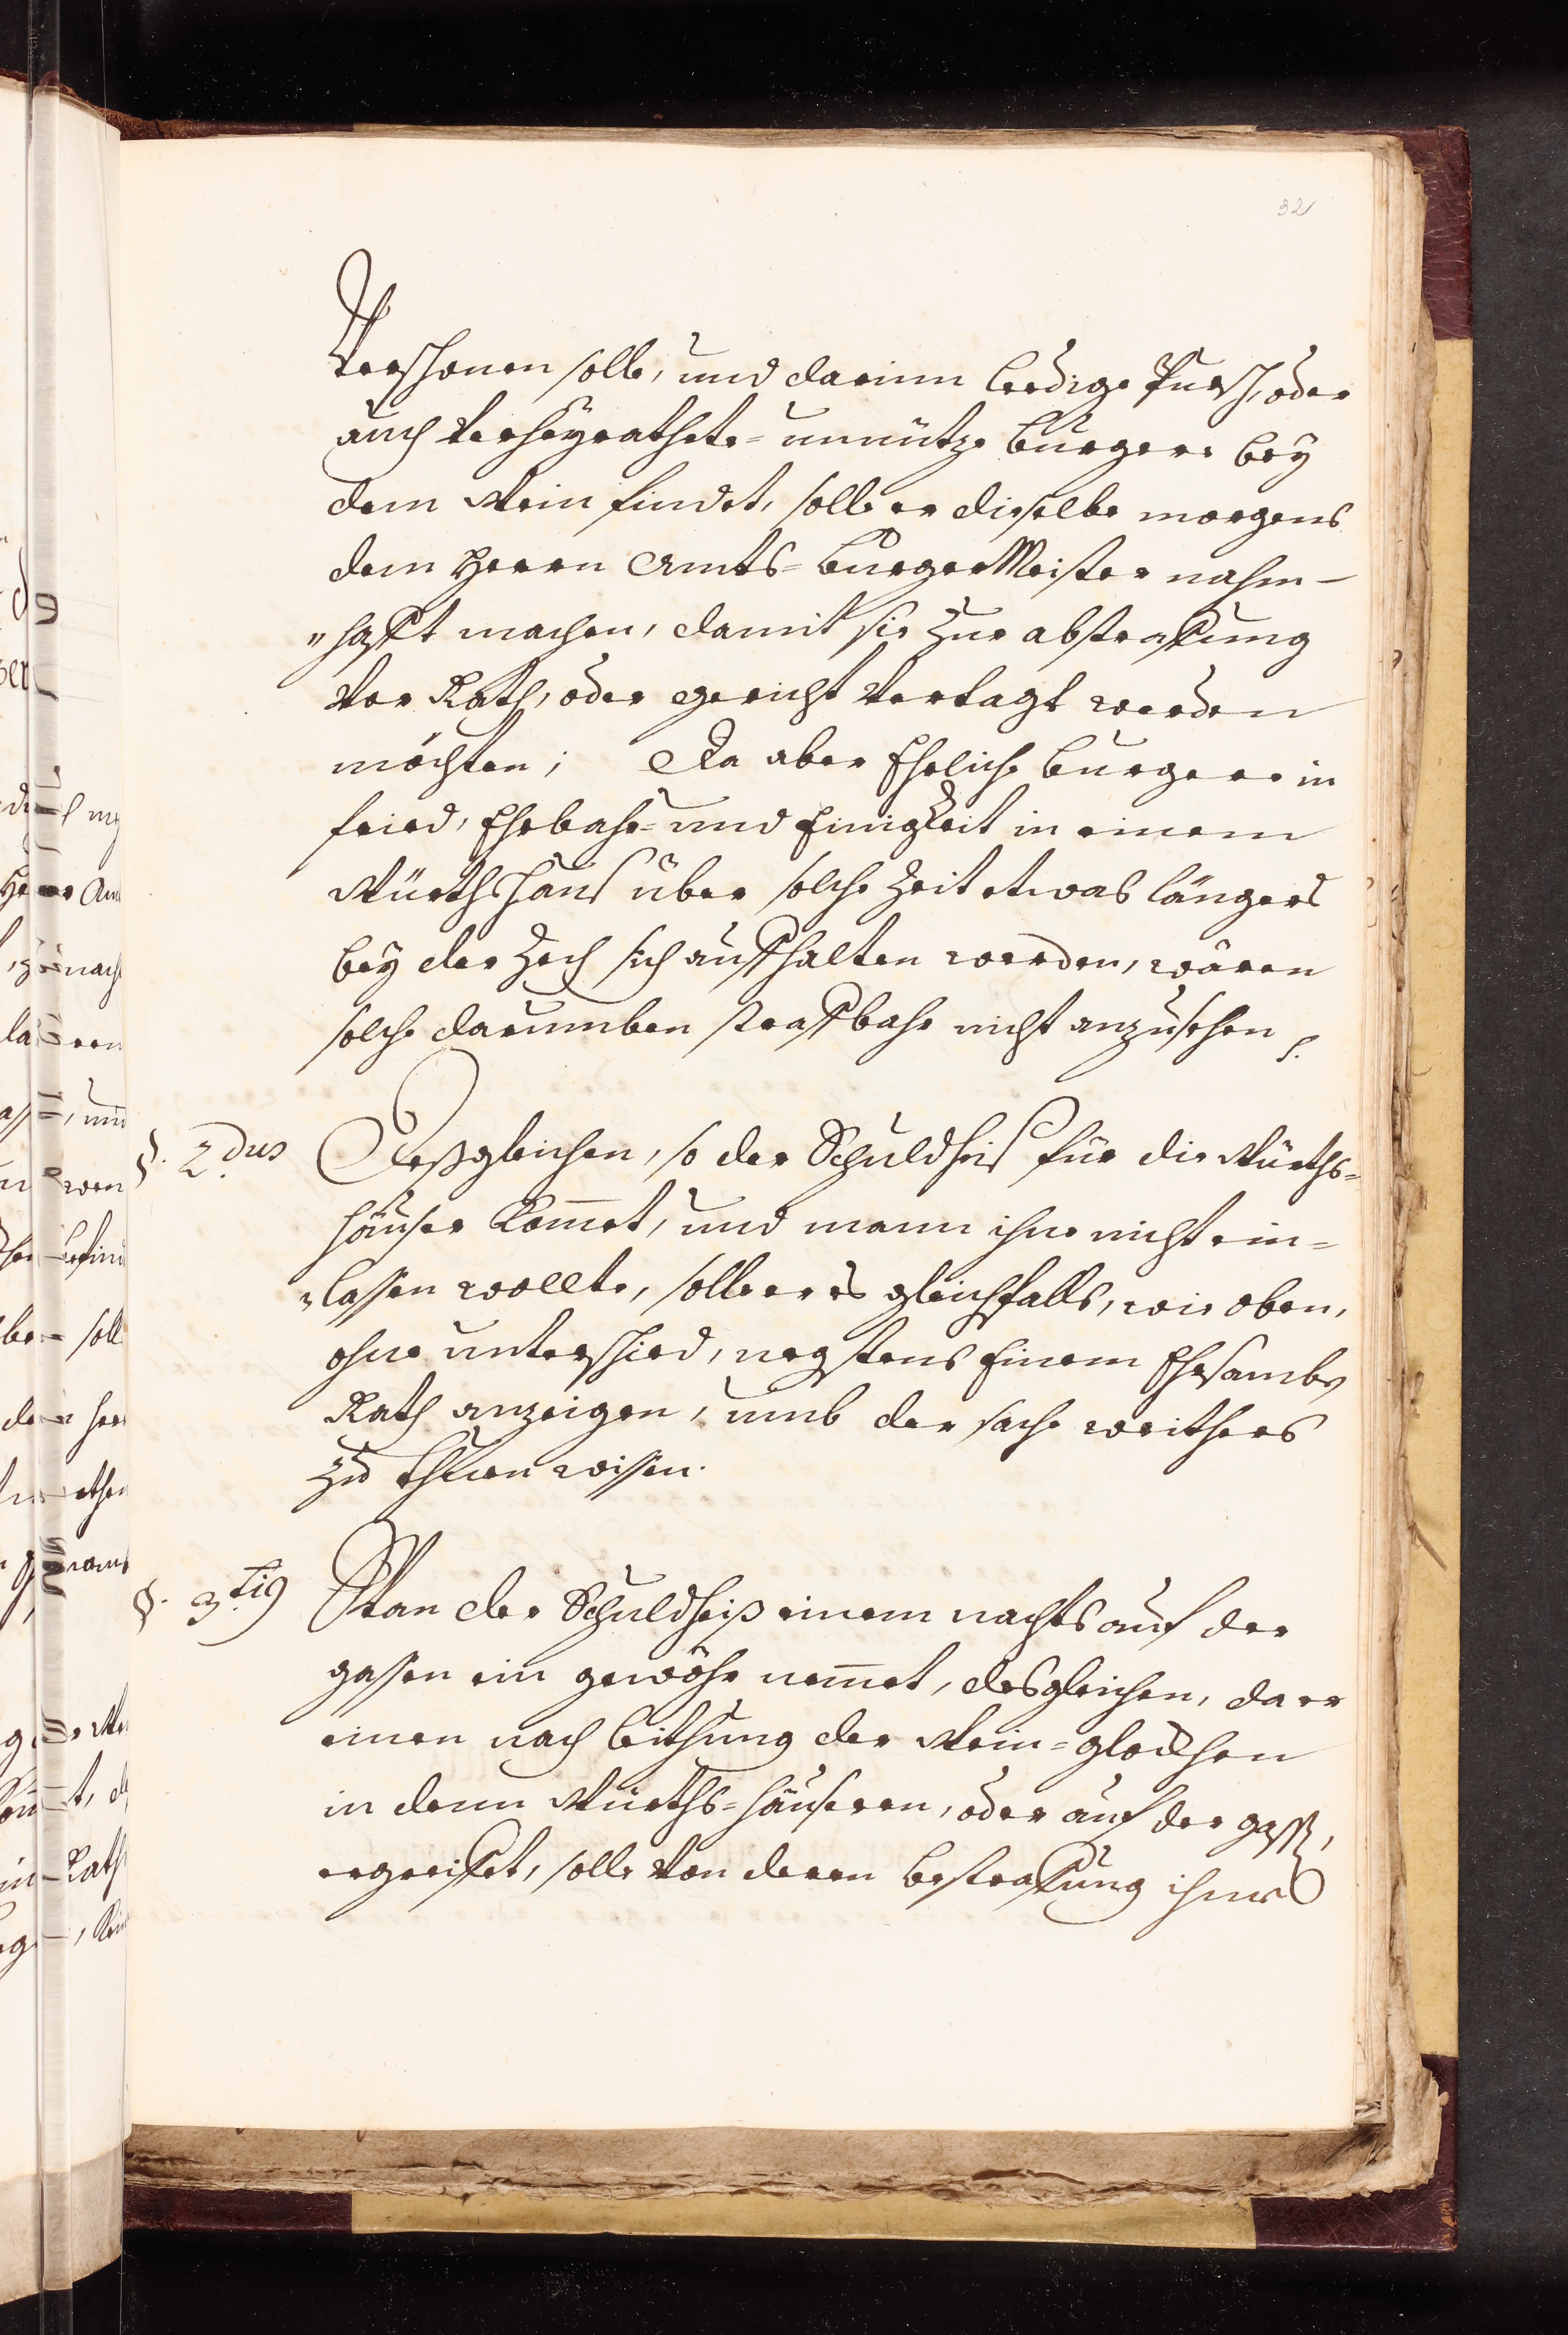 32
Verschonen solle, und darinn Leedige Pursch, oder
auch Verheyrathete= unnütze Burgere bey
dem Wein findet, solle er dieselbe morgens
dem Herrn Amts= BurgerMeister nahm-
"hafft machen, damit sie zur abstrafung
Vor Rath, oder gericht Vertagt werden
möchten; Da aber Ehrliche Burgere in
fried, Ehrbahr= und Einigkeit in einem
Würthshaus über solche Zeit etwas längers
bey der Zech sich auffhalten werden, wären
solche darumben straffbahr nicht anzusehen
§. 2.dus Deßgleichen, so der Schuldheis für die Würths=
häuser kom̄et, und mann ihne nicht ein=
"lassen wollte, solle er es gleichfalls, wie oben,
ohne unterschied, negstens Einem Ehrsamben
Rath anzeigen, umb der sache weithers
zu thuen wissen.
§. 3.tiò Wan der Schuldheiß einem nachts auf der
gassen ein gewöhr nem̄et, desgleichen, da er
einen nach leithung der Wein= glockhen
in denn Würths= häuseren, oder auf der gaß,
ergreiffet, solle von deren bestrafung ihme